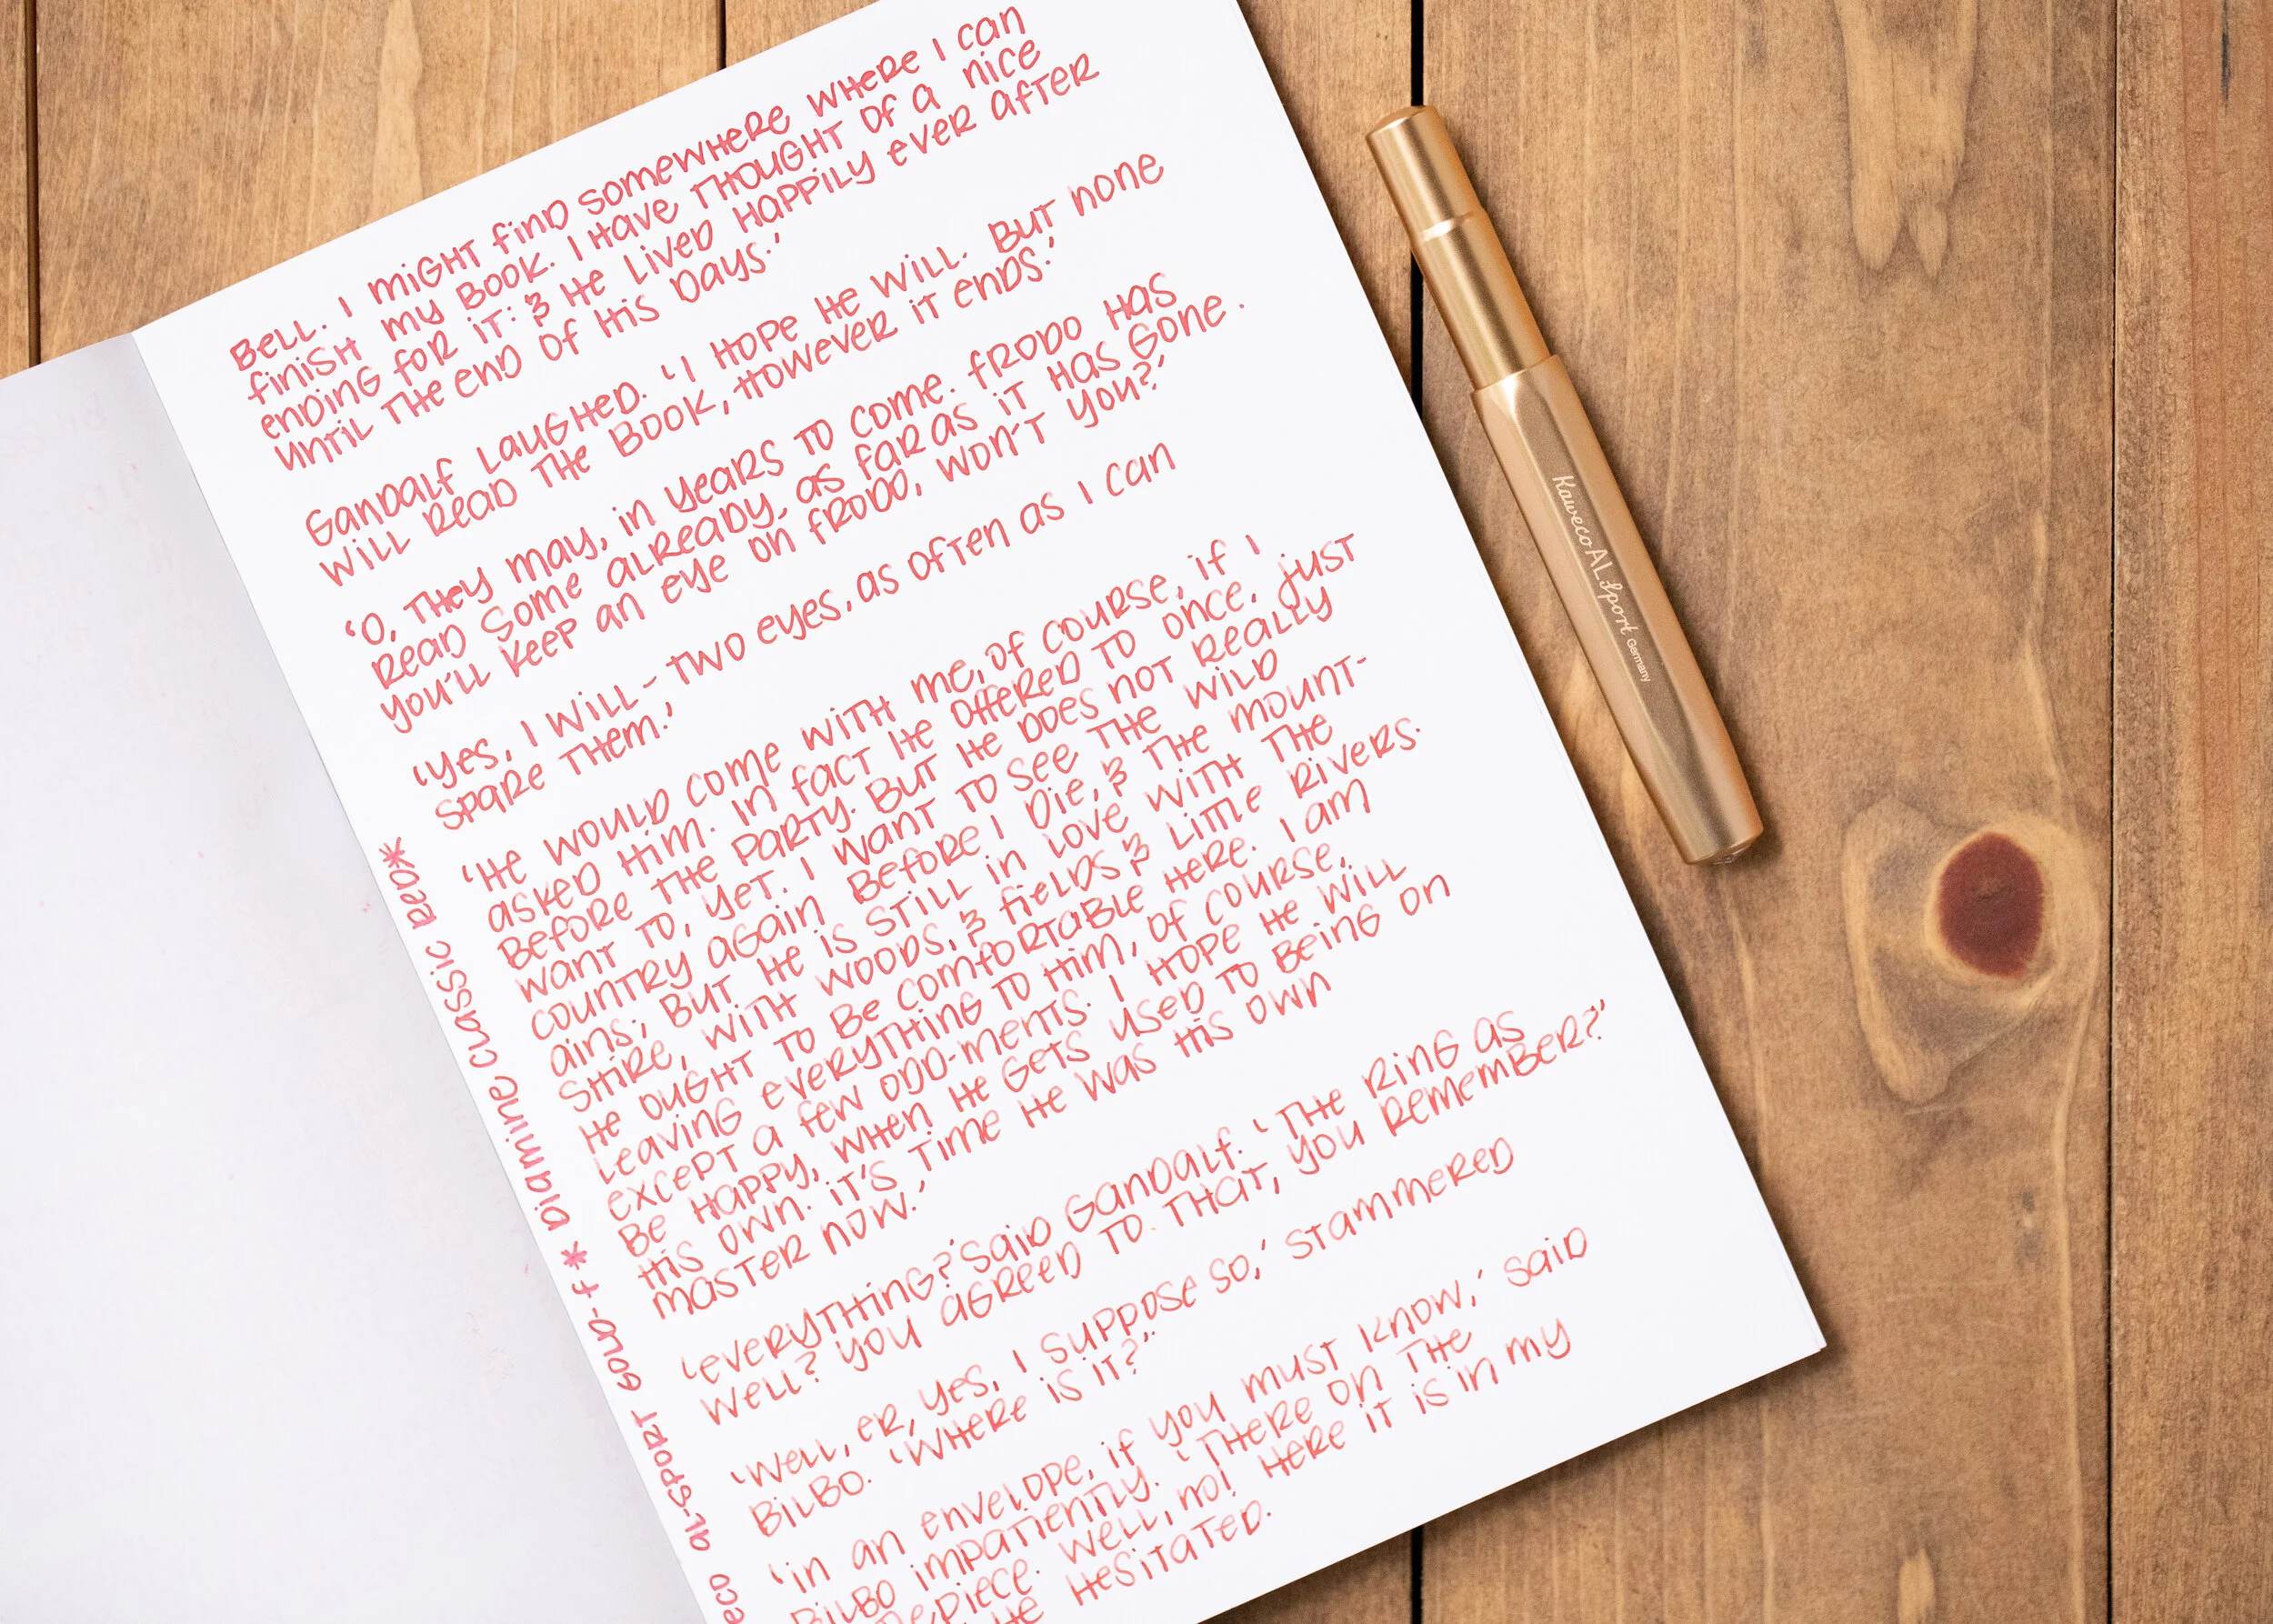 BELL. I MIGHT FIND SOMEWHERE WHERE I CAN
FINISH MY BOOK. I HAVE THOUGHT OF A NICE
ENDING FOR IT: & HE LIVED HAPPILY EVER AFTER
UNTIL THE END OF HIS DAYS.'
GANDALF LAUGHED. 'I HOPE HE WILL. BUT NONE
WILL READ THE BOOK, HOWEVER IT ENDS.'
'O, THEY MAY, IN YEARS TO COME. FRODO HAS
READ SOME ALREADY, AS FAR AS IT HAS GONE.
YOU'LL KEEP AN EYE ON FRODO, WON'T YOU?'
'YES, I WILL - TWO EYES, AS OFTEN AS I CAN
SPARE THEM.'
'HE WOULD COME WITH ME, OF COURSE, IF I
ASKED HIM. IN FACT HE OFFERED TO ONCE, JUST
BEFORE THE PARTY. BUT HE DOES NOT REALLY
WANT TO, YET. I WANT TO SEE THE WILD
COUNTRY AGAIN BEFORE I DIE, & THE MOUNT-
AINS; BUT HE IS STILL IN LOVE WITH THE
SHIRE, WITH WOODS, & FIELDS & LITTLE RIVERS.
HE OUGHT TO BE COMFORTABLE HERE. I AM
LEAVING EVERYTHING TO HIM, OF COURSE,
EXCEPT A FEW ODD-MENTS. I HOPE HE WILL
BE HAPPY, WHEN HE GETS USED TO BEING ON
HIS OWN. IT'S TIME HE WAS HIS OWN
MASTER NOW.'
'EVERYTHING?' SAID GANDALF. 'THE RING AS
WELL? YOU AGREED TO THAT, YOU REMEMBER?'
'WELL, ER, YES, I SUPPOSE SO,' STAMMERED
BILBO. 'WHERE IS IT?'
'IN AN ENVELOPE, IF YOU MUST KNOW,' SAID
BILBO IMPATIENTLY. 'THERE ON THE
PIECE. WELL, NO! HERE IT IS IN MY
HE HESITATED.
ECO AL-SPORT GOLD-F * DIAMINE CLASSIC RED*
Kaweco AL Sport Germany